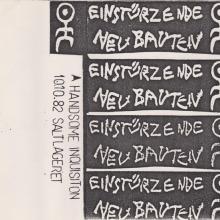 A HANDSOME INQUISITION
10.10.82 SALTLAGERET
EINSTÜRZENDE
NEUBAUTEN
EINSTÜRZENDE
NEUBAUTEN
EINSTÜRZENDE
NEUBAUTEN
EINSTÜRZENDE
NEUBAUTEN